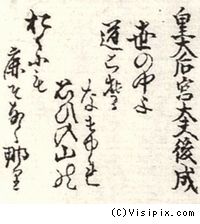 皇太后宮大夫俊成
世の中よ
道こそ
なけれ
思ひ入山の
おくにも
鹿そなく那る
(C)Visipix.com